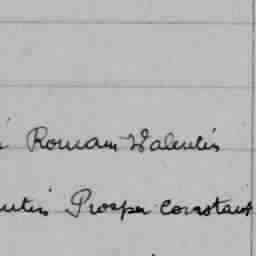 Romain Valentin
Prosper Constant